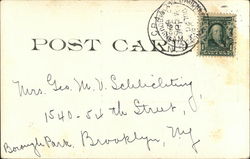 POST CARD
Mrs. Geo. M. V. Schlichting,
1540-54 th Street,
Borough Park, Brooklyn, Ny